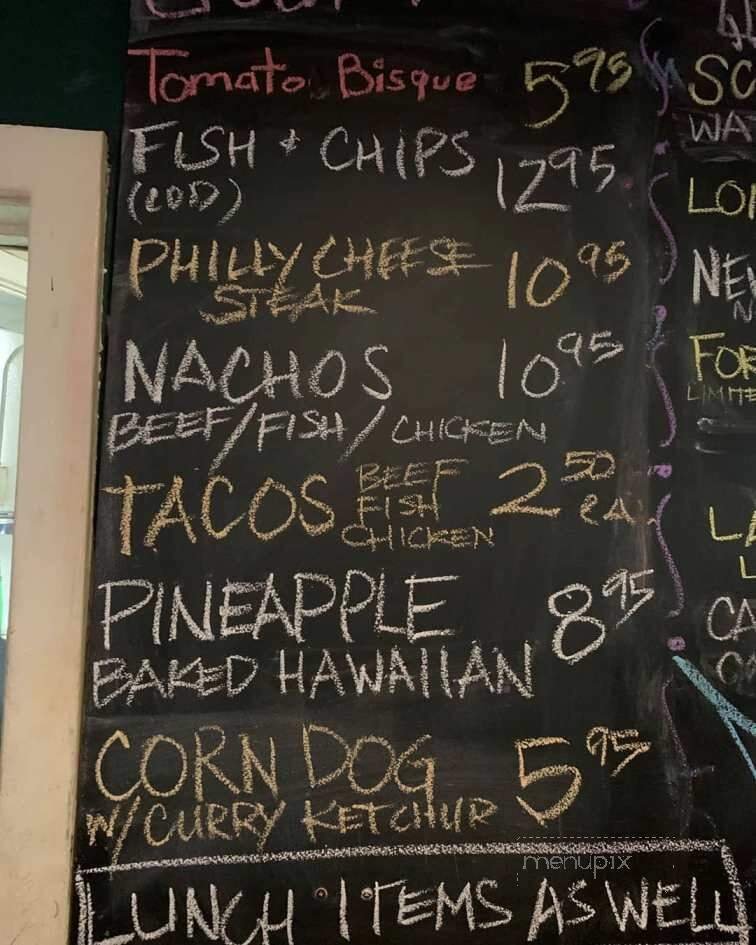 Tomato Bisque 5 95
FISH + CHIPS 12 95
(COD)
PHILLY CHEESE 10 95
STEAK
NACHOS 10 95
BEEF/FISH/CHICKEN
TACOS BEEF 2 50
FISH EA.
CHICKEN
PINEAPPLE 8 95
BAKED HAWAIIAN
CORN DOG 5 95
W/CURRY KETCHUP
LUNCH ITEMS AS WELL
SC
WA
LO
NEW
N
FOR
LIMITE
LA
L
CA
menupix